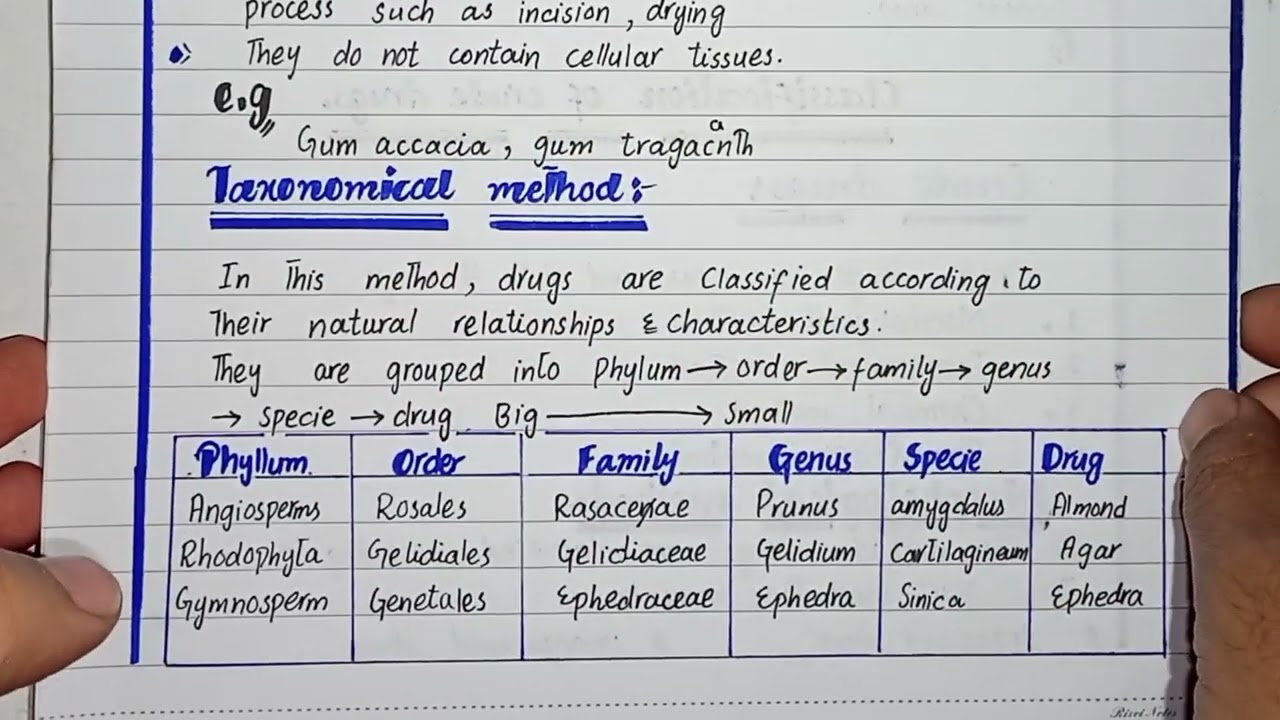 process such as incision, drying
They do not contain cellular tissues.
e.g
Gum accacia, gum tragacanth
Taxonomical method:-
In this method, drugs are classified according to
their natural relationships & characteristics.
They are grouped into Phylum → order → family → genus
→ specie → drug Big → Small
Phyllum Order Family Genus Specie Drug
Angiosperms Rosales Rasaceae Prunus amygdalus Almond
Rhodophyta Gelidiales Gelidiaceae Gelidium Cartilagineum Agar
Gymnosperm Genetales Ephedraceae Ephedra Sinica Ephedra